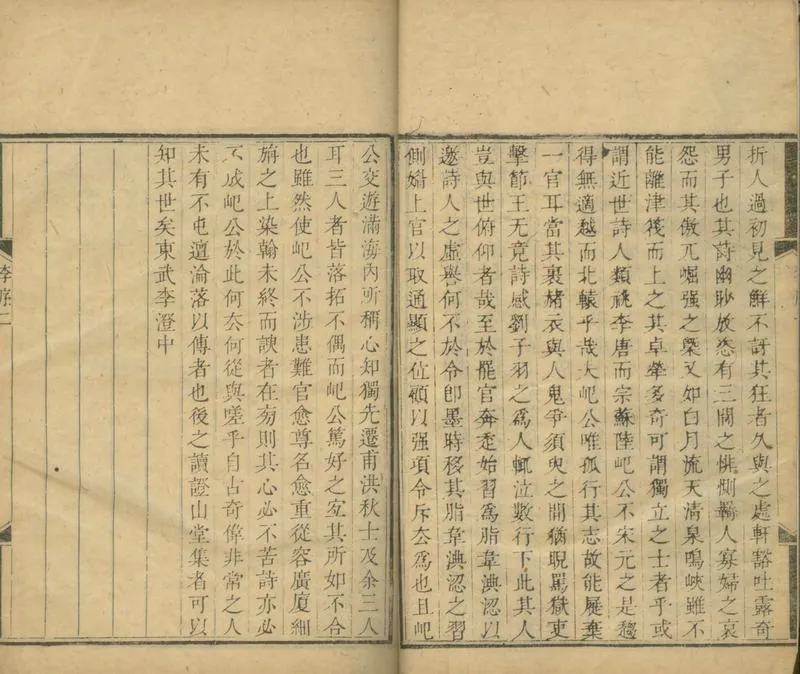 折人過初見之鮮不訝其狂者久與之處軒豁吐露奇
男子也其詩幽眇放恣有三閭之悱惻羇人寡婦之哀
怨而其傲兀崛强之槩又如白月流天清泉鳴峽雖不
能離津筏而上之其卓犖多奇可謂獨立之士者乎或
謂近世詩人類祧李唐而宗蘇陸屺公不宋元之是趨
得無適越而北轅乎哉大屺公唯孤行其志故能屣棄
一官耳當其裹赭衣與人鬼爭須臾之間猶睨罵獄吏
擊節王无竟詩感劉子羽之為人輒泣數行下此其人
豈與世俯仰者哉至於罷官奔走始習為脂韋淟涊以
邀詩人之虛譽何不於令即墨時移其脂韋淟涊之習
側媚上官以取通顯之位顧以强項令斥去為也且屺
公交遊滿海內所稱心知獨先遷甫洪秋士及余三人
耳三人者皆落拓不偶而屺公篤好之宐其所如不合
也雖然使屺公不涉患難官愈尊名愈重從容廣廈細
旃之上染翰未終而諛者在旁則其心必不苦詩亦必
不成屺公於此何去何從與嗟乎自古奇偉非常之人
未有不屯邅淪落以傳者也後之讀證山堂集者可以
知其世矣東武李澄中
李序二